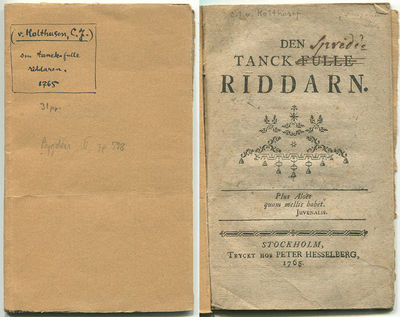 (v. Holthusen, C. J.)
den Tanckfulle
riddaren.
1765
31 pp.
C. J. v. Holthusen
DEN
Spridde
TANCK FULLE
RIDDARN.
Plus Aloës
quam mellis habet.
JUVENALIS.
STOCKHOLM,
TRYCKT HOS PETER HESSELBERG,
1765.